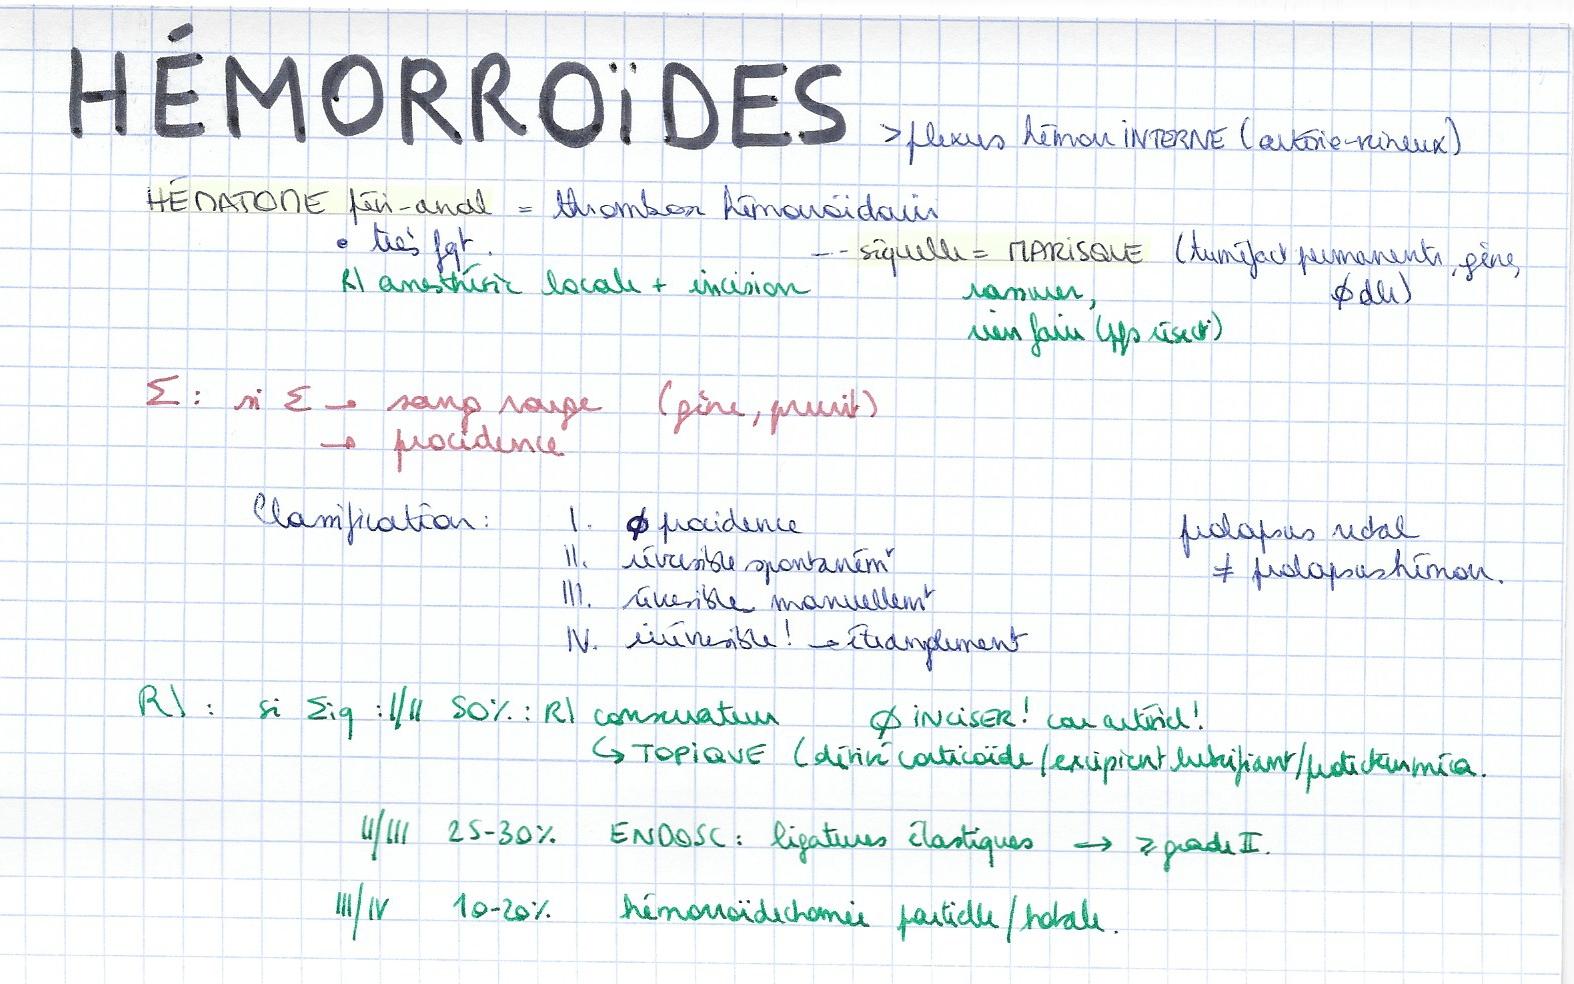 HÉMORROÏDES
> plexus hémorr INTERNE (artério-veineux)
HÉMATOME péri-anal = thrombose hémorroïdaire
• très fqt.
-- séquelle = MARISQUE (tuméfact permanente, gêne,
R) anesthésie locale + incision rassurer, ϕ dlr)
rien faire (pfs résect)
Σ : si Σ → sang rouge (gêne, prurit)
→ procidence
Classification : I. ϕ procidence
II. réversible spontaném^t
III. réversible manuellem^t
IV. irréversible ! → étranglement
prolapsus rectal
≠ prolapsus hémorr.
R) : si Σiq : I/II 50% : R) conservateur ϕ INCISER ! car artériel !
↳ TOPIQUE (dérivé corticoïde/excipient lubrifiant/
II/III 25-30% ENDOSC : ligatures élastiques → ≥ grade II.
III/IV 10-20% hémorroïdectomie partielle/totale.